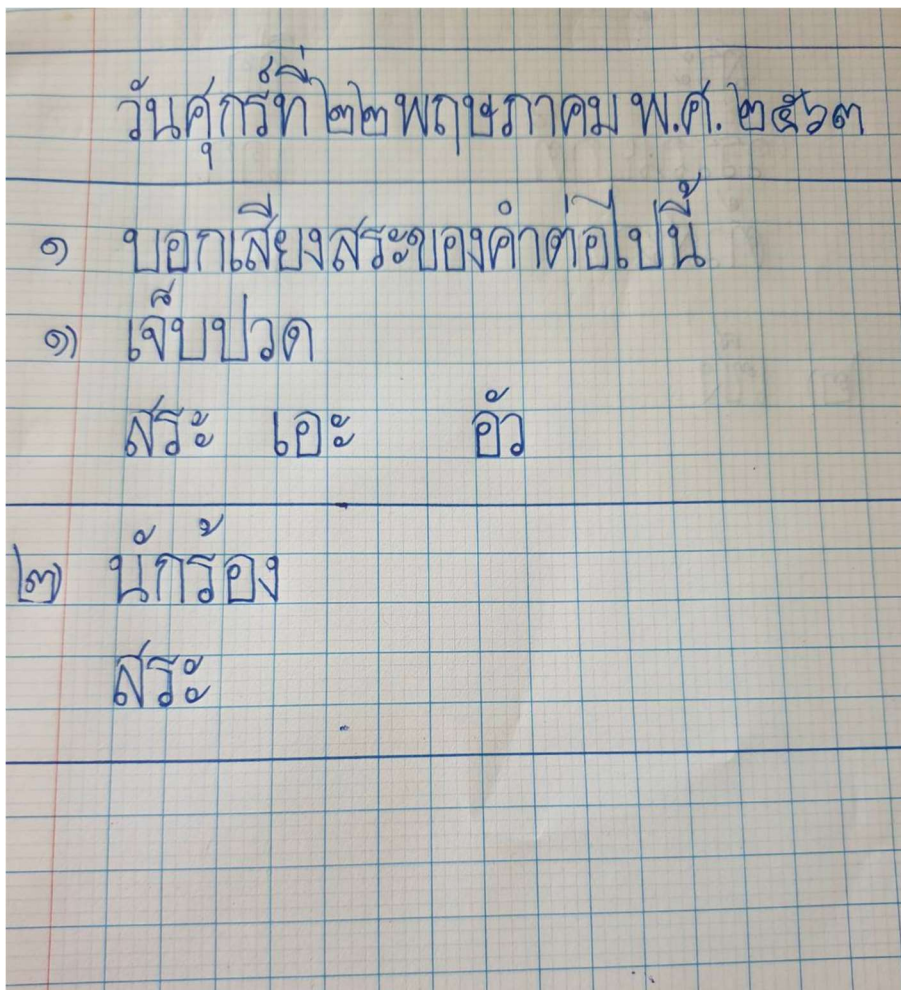 วันศุกร์ที่ ๒๒ พฤษภาคม พ.ศ. ๒๕๖๓
๑ บอกเสียงสระของคำต่อไปนี้
๑) เจ็บปวด
สระ เอะ อัว
๒) นักร้อง
สระ